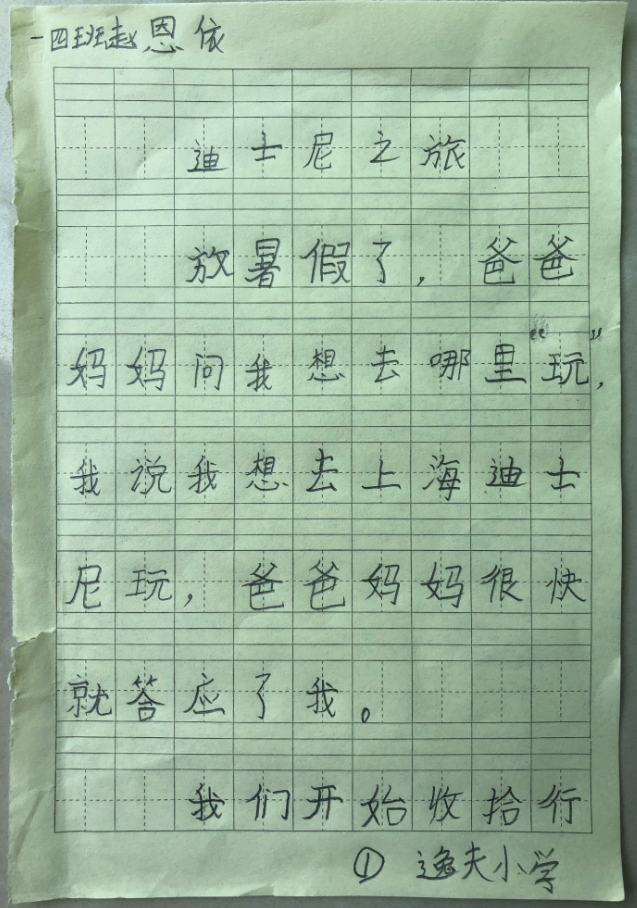 一四班赵恩依
迪士尼之旅
放暑假了，爸爸
妈妈问我想去哪里“玩”，
我说我想去上海迪士
尼玩，爸爸妈妈很快
就答应了我。
我们开始收拾行
① 逸夫小学